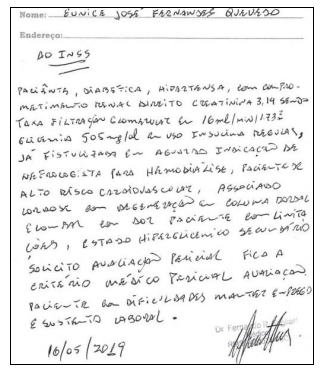 Nome: EUNICE JOSÉ FERNANDES QUEVEDO
Endereço:
AO INSS
PACIENTE, DIABÉTICA, HIPERTENSA, COM COMPRO-
METIMENTO RENAL DIREITO CREATININA 3,14 SENDO
TAXA FILTRAÇÃO GLOMERULAR EM 16ml/MIN/1.73²
GLICEMIA 505mg/dl EM USO INSULINA REGULAR,
JÁ FISTULIZADA EM AGUARDO INDICAÇÃO DE
NEFROLOGISTA PARA HEMODIÁLISE, PACIENTE DE
ALTO RISCO CARDIOVASCULAR, ASSOCIADO
LORDOSE COM DEGENERAÇÃO EM COLUNA DORSAL
E LOMBAR COM DOR PACIENTE COM LIMITA
ÇÕES, ESTADO HIPERGLICÊMICO SECUNDÁRIO
SOLICITO AVALIAÇÃO PERICIAL FICA A
CRITÉRIO MÉDICO PERICIAL AVALIAÇÃO.
PACIENTE COM DIFICULDADES MANTER EMPREGO
E SUSTENTO LABORAL.
Dr.
16/05/2019